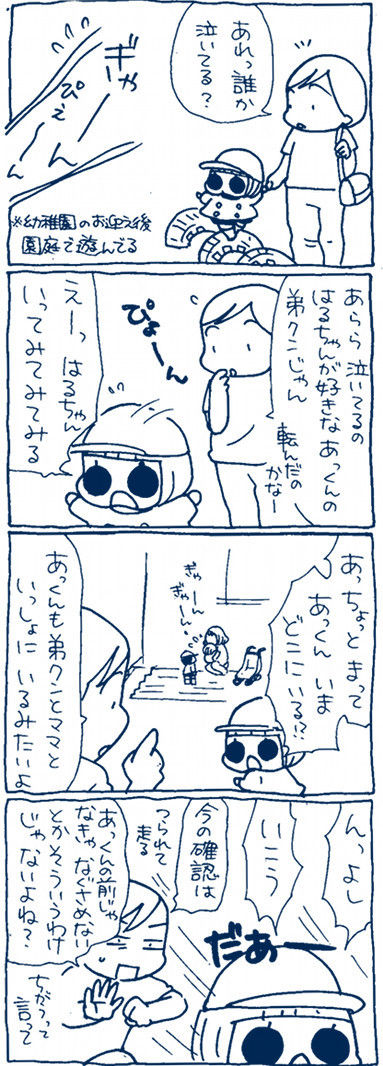 あれっ誰か
泣いてる？
ぎゃー
ぴえーん
※幼稚園のお迎え後
園庭で遊んでる
あらら 泣いてるの
はるちゃんが好きな あっくんの
弟クンじゃん
転んだの
かなー
ぴょーん
えーっ はるちゃん
いってみてみてみる
あっちょっと まって
あっくん いま
どこにいる!?
ぎゃーん
ぎゃーん
あっくんも弟クンとママと
いっしょに いるみたいよ
んっよし
いこう
今の確認は
つられて
走る
だあーー
あっくんの前じゃ
なきゃ なぐさめない
とかそういうわけ
じゃないよね？
ちがうって
言って